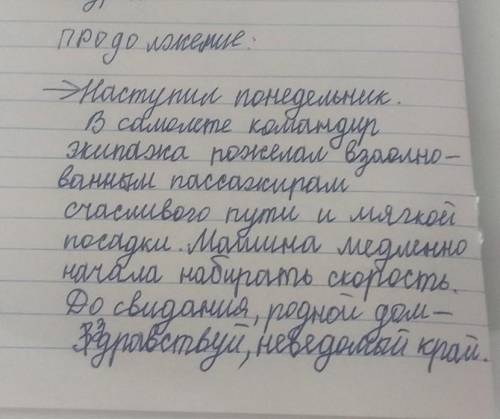 продолжение:
→Наступил понедельник.
В самолете командир
экипажа пожелал взволно-
ванным пассажирам
счасливого пути и мягкой
посадки. Машина медленно
начала набирать скорость.
До свидания, родной дом-
Здравствуй, неведомый край.